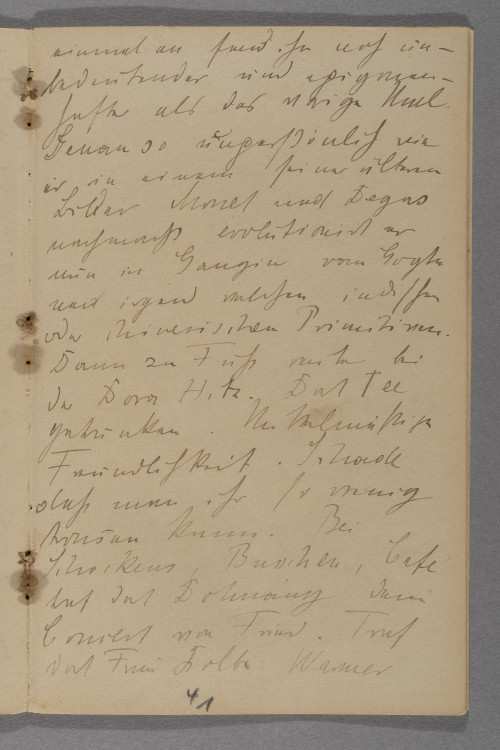 einmal an fand ihn noch un-
bedeutender und epigonen-
hafter als das vorige Mal.
Genau so unpersönlich wie
er in einem seiner älteren
Bilder Monet und Degas
nachmacht evolutioniert er
nun in Gaugin vom Goghn
und irgend welchen indischen
oder chinesischen Primitiven.
Dann zu Fuß weiter bei
der Dora Hitz. Dort Tee
getrunken. Mittelmäßige
Freundlichkeit. Schade
daß man ihr so wenig
trauen kann. Bei
Schockens, Buochen, Café
Auf dort Dann
Concert von Fried. Traf
dort Frau Kolbe Warner
41